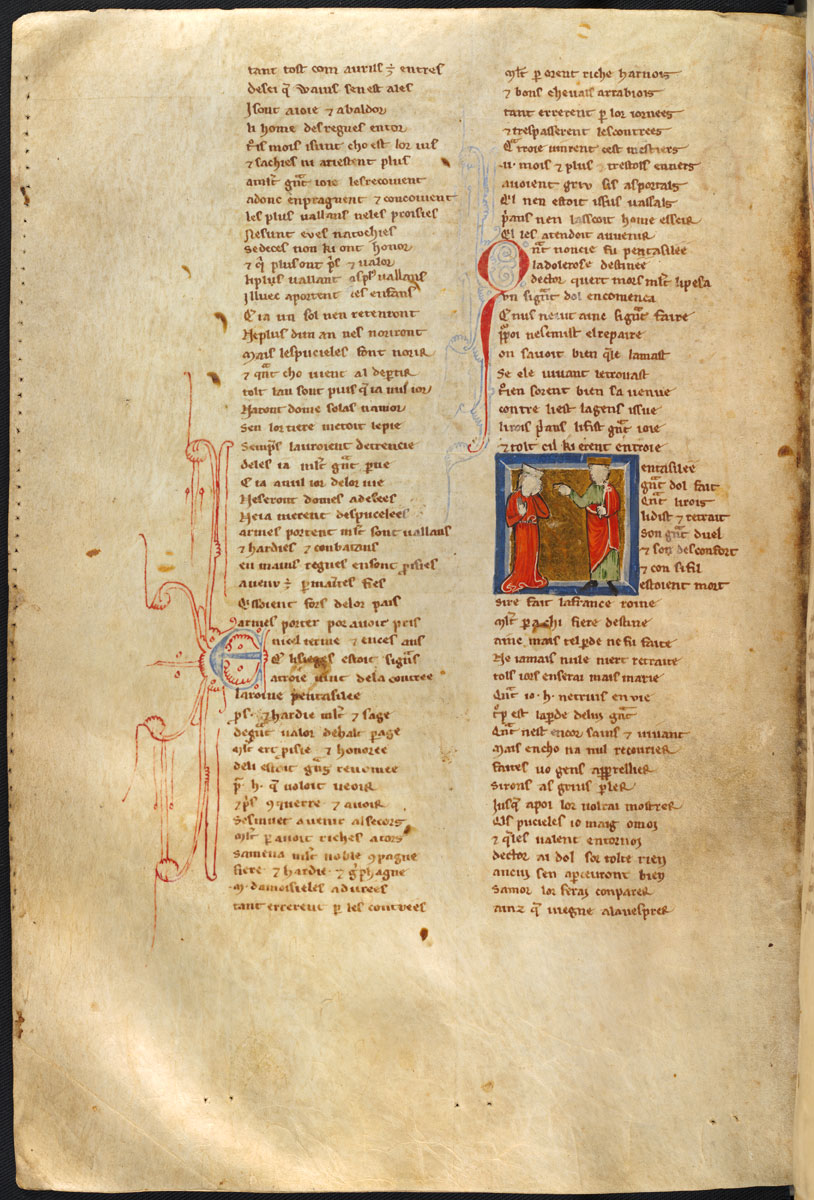 tant tost com aurils ÷ entres
desci q̄ wains sen est ales
Isont aioie ⁊ abaldor
li home des regnes entor
Trs mois i sunt cho est lor us
⁊ sachies ni arestent plus
a mlt gnt ioie les recoivent
adonc enpragnent ⁊ concoivent
les plus vallans ⁊ les proisies
Nesunt eves
sedeces non ki ont honor
⁊ q̄ plus ont pis ⁊ valor
li plus vallant as plus vallans
Illuec aportent ces enfans
E ia un sol nen retenront
Neplus dun an nes noriront
Mais les puceles font norir
⁊ qnt cho vient al departir
tolt lan sont puis q̄ ia nul ior
Naront dome solas namor
Sen lor tiere metoit le pie
Sempres lauroient detrencie
deles ia mlt gnt ptie
E ia a nul ior de lor vie
Neseront domes adesees
Ne ia nierent despucelees
armes portent mlt sont vallans
⁊ hardies ⁊ conbatans
en mains regnes en sont prisies
avenu ÷ p maintes fies
Qissoient fors de lor pais
armes porter por avoir pris
E n icel terme ⁊ en ces ans
Q̄l sieges estoit si grans
a troie vint de la contree
la roine pentasilee
pros ⁊ hardie mlt ⁊ sage
de gnt valor de halt page
Mlt ert prisie ⁊ honoree
de li estoit gns renomee
p̄ .h. q̄ voloit veoir
⁊ pris 9querre ⁊ avoir
Sesmuet a venir al secors
Mlt p avoit riches ators
Samena mlt noble 9pagne
fiere ⁊ hardie ⁊ griphagne
.M. damoiseles adurees
tant errerent p les contrees
Mlt p orent riche harnois
⁊ bons chevals arrabiois
tant errerent p lor iornees
⁊ trespasserent les contrees
Qa troie vinrent cest mestiers
.ii. mois ⁊ plus ÷ trestols entiers
avoient griu sis as portals
Q̄l nen estoit issus vassals
prians nen lassoit home issir
Q̄l les atendoit a venir
Q nt noncie fu pentasilee
la dolerose destinee
dector quert mors mlt li pesa
Un si gnt dol en comenca
Q nus ne vit aine si gnt faire
p qoi ne se mist el repaire
on savoit bien q̄le lamast
Se ele vivant le trovast
Trien sorent bien sa venue
contre li est la gens issue
li rois prians li fist gnt ioie
⁊ tolt cil ki erent en troie
entasilee
gnt dol fait
Qnt li rois
li dist ⁊ retrait
son gnt duel
⁊ son desconfort
⁊ con si fil
estoient mort
Sire fait la france roine
Mlt p a chi fiere destine
aine mais tel pde ne fu faite
Ne iamais nule niert retraite
tols iors en serai mais marie
Qnt io .h. ne truis en vie
trop est la pde de lui gnt
Qnt nest encor sains ⁊ vivant
Mais en cho na nul recovrier
faites vo gens apparellier
Sirons as grius pler
Iusq̄ a poi lor volrai mostrer
Q̄ls puceles io maig o moi
⁊ q̄les valent en tornoi
dector ai dol sor tolte rien
ancui sen apcevront bien
Samor lor ferai conparer
ainz q̄ viegne a la vesprer